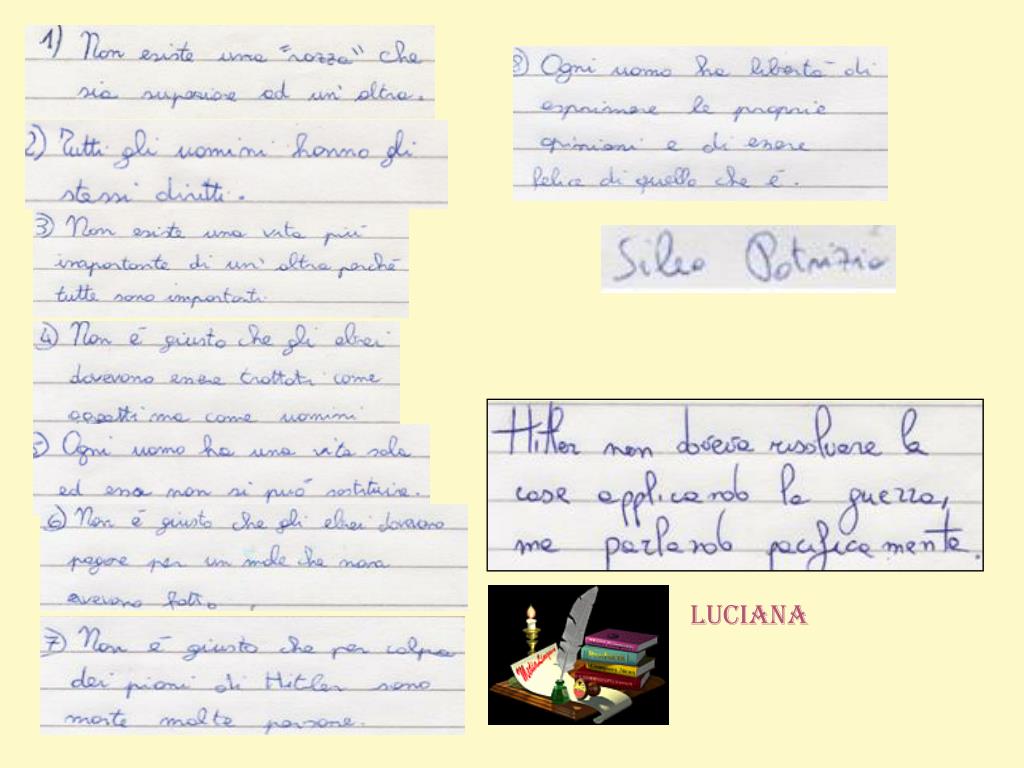 1) Non esiste una "razza" che
sia superiore ad un' altra.
2) Tutti gli uomini hanno gli
stessi diritti.
3) Non esiste una vita più
importante di un' altra perché
tutte sono importanti.
4) Non è giusto che gli ebrei
dovevano essere trattati come
oggetti ma come uomini
5) Ogni uomo ha una vita sola
ed essa non si può sostituire.
6) Non è giusto che gli ebrei dovevano
pagare per un male che non
avevano fatto.
7) Non è giusto che per colpa
dei piani di Hitler sono
morte molte persone.
8) Ogni uomo ha libertà di
esprimere le proprie
opinioni e di essere
felice di quello che è.
Patrizia
Hitler non doveva risolvere le
cose applicando la guerra,
ma parlando pacificamente.
LUCIANA